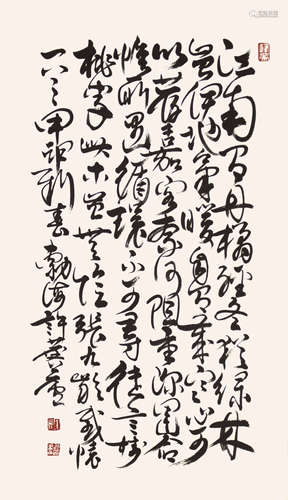 江南有丹橘經冬猶綠林
豈伊地氣暖自有歲寒心可
以薦嘉客奈何阻重深運命
惟所遇循環不可尋徒言樹
桃李此木豈無陰張九齡感懷
新春勃海許